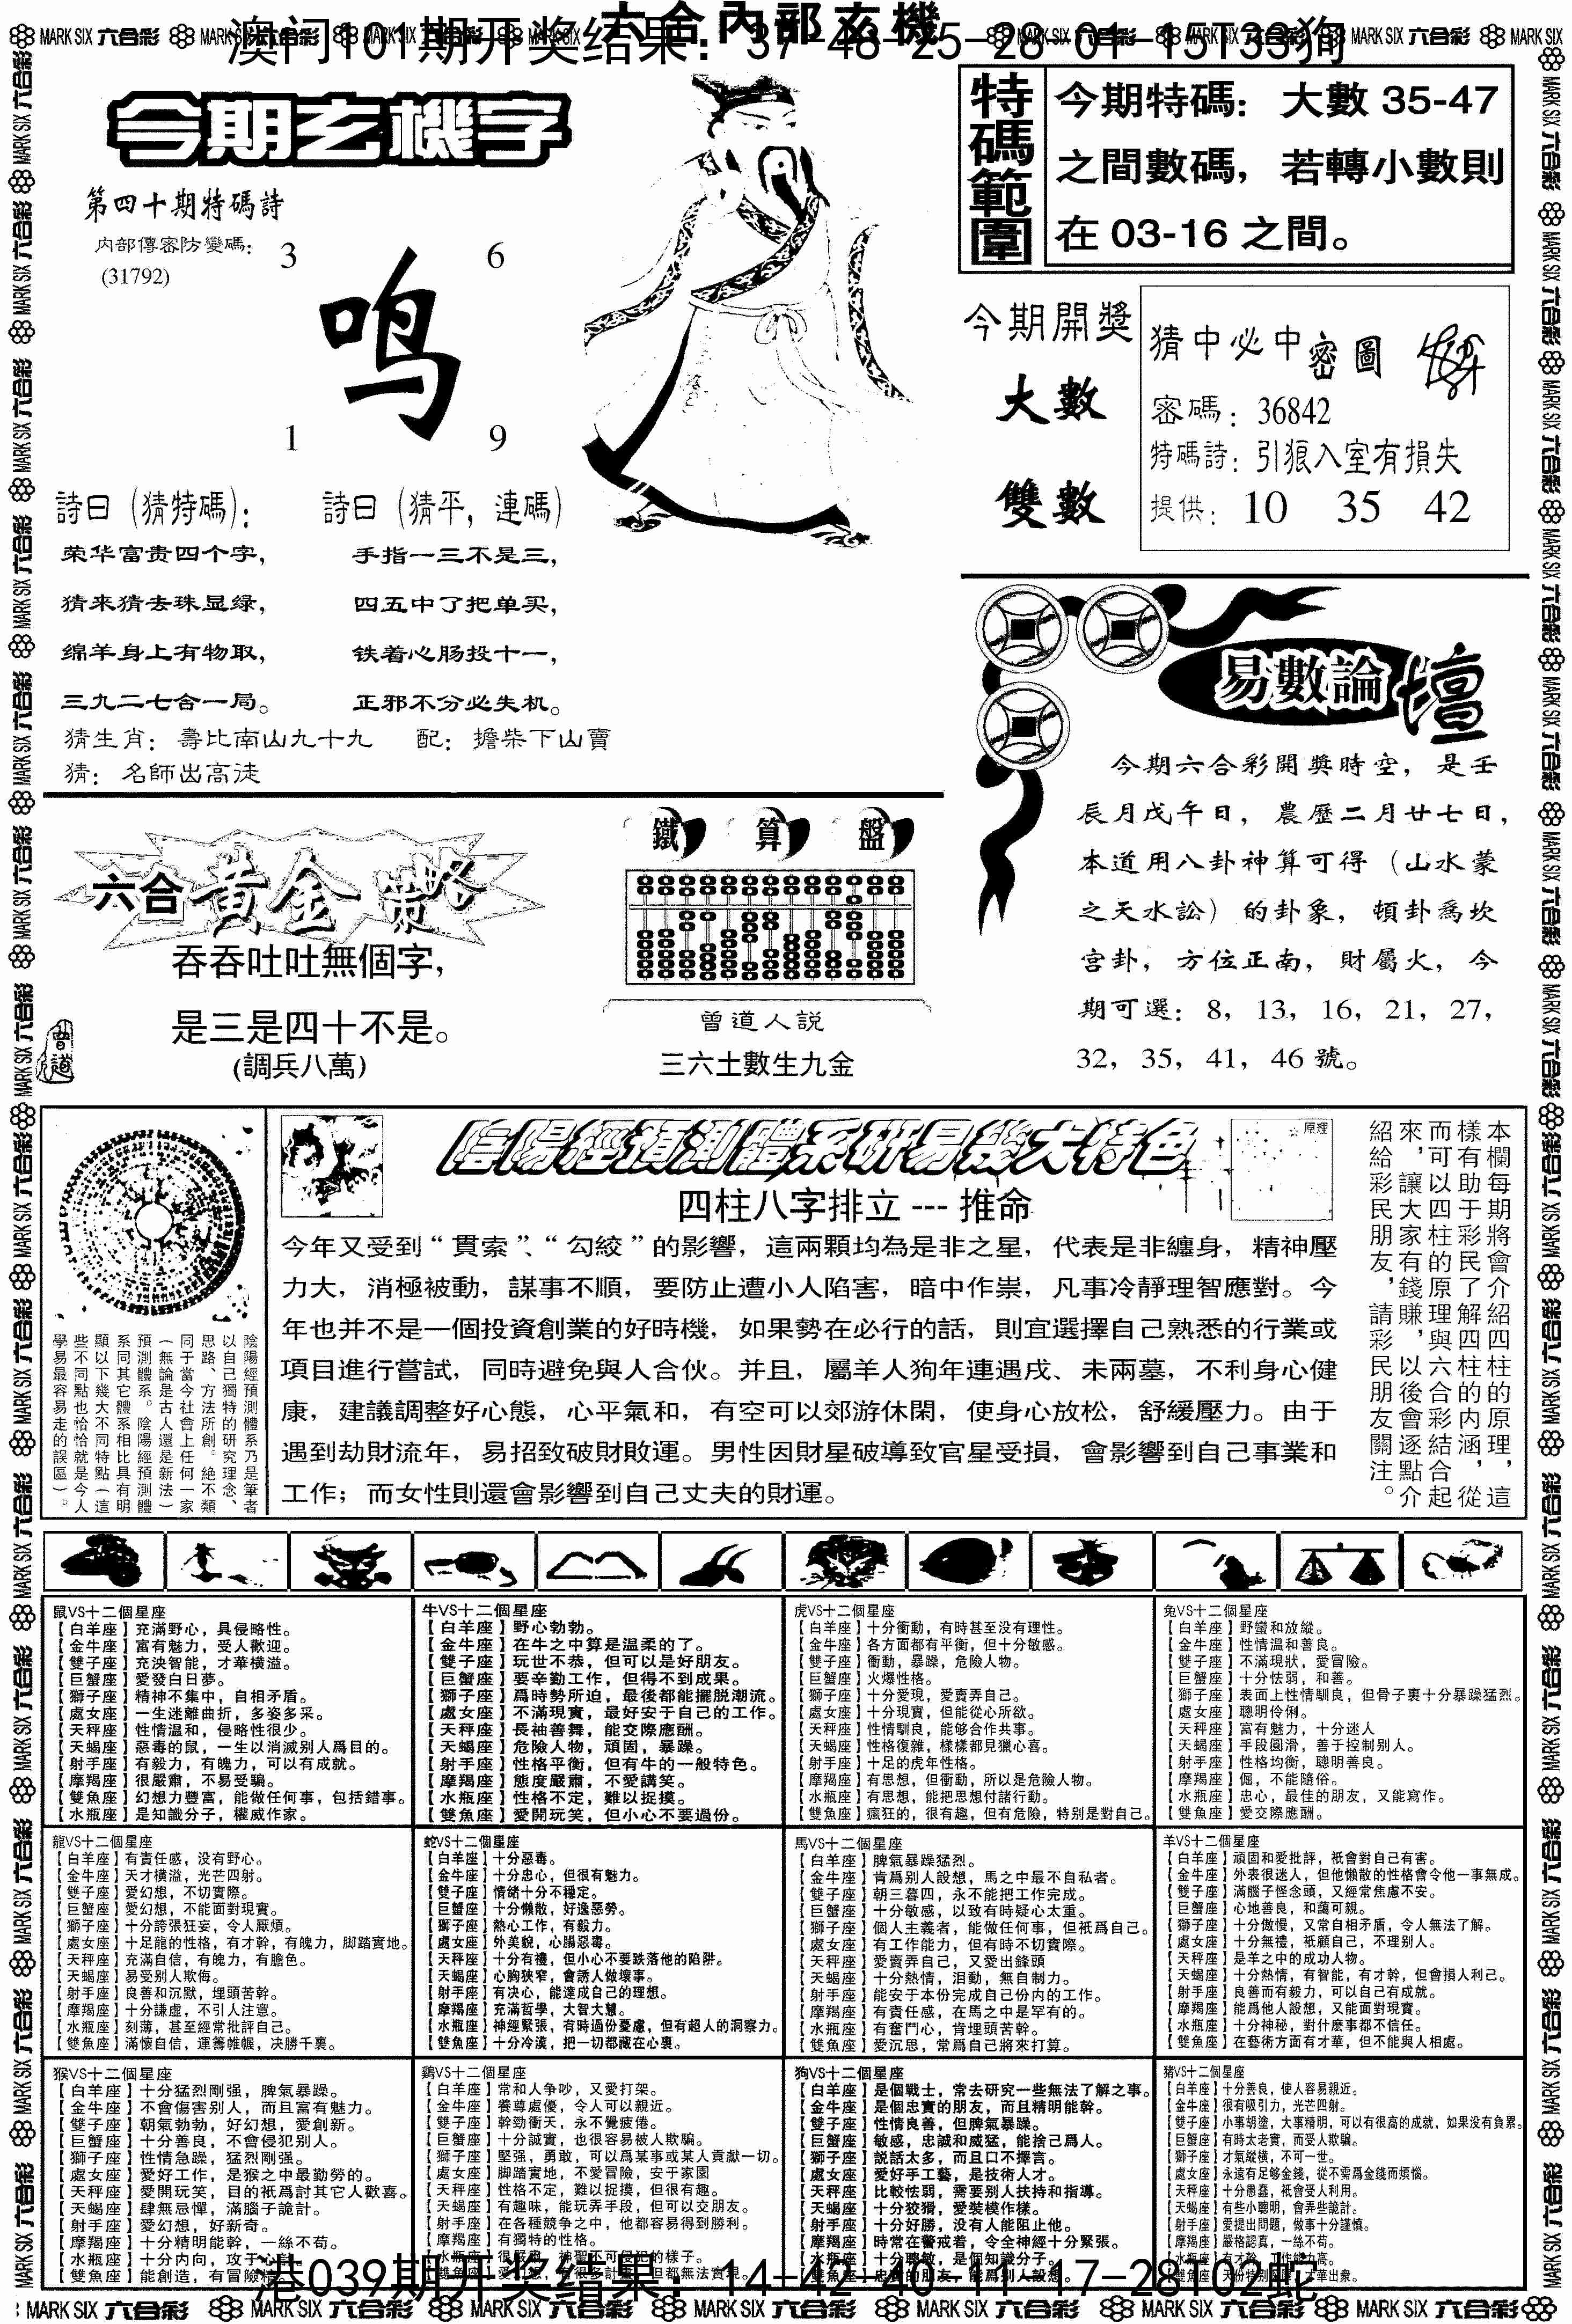 六合內部玄機
澳门101期开奖结果：37-48-25-28-01-15T33狗
今期玄機字
第四十期特碼詩
内部傳密防變碼：
(31792)
3
6
鸣
1
9
特碼範圍
今期特碼：大數 35-47
之間數碼，若轉小數則
在 03-16 之間。
今期開獎
大數
雙數
猜中必中密圖
密碼：36842
特碼詩：引狼入室有損失
提供：10 35 42
詩曰（猜特碼）：
荣华富贵四个字，
猜来猜去珠显绿，
绵羊身上有物取，
三九二七合一局。
詩曰（猜平，連碼）
手指一三不是三，
四五中了把单买，
铁着心肠投十一，
正邪不分必失机。
猜生肖：壽比南山九十九 配：擔柴下山賣
猜：名師出高徒
易數論壇
今期六合彩開獎時空，是壬
辰月戊午日，農歷二月廿七日，
本道用八卦神算可得（山水蒙
之天水訟）的卦象，頓卦爲坎
宫卦，方位正南，財屬火，今
期可選：8，13，16，21，27，
32，35，41，46 號。
六合黃金策略
吞吞吐吐無個字，
是三是四十不是。
(調兵八萬)
曾道
鐵算盤
曾道人説
三六土數生九金
陰陽經預測體系乃是筆者
以自己獨特的研究理念、
思路、方法所創。絶不類
同于當今社會上任何一家
（無論是古人還是新法）
預測體系。陰陽經預測體
系同其它體系相比具有明
顯以下幾大不同特點（這
些不同點也恰恰就是今人
學易最容易走的誤區）。
陰陽經預測體系研易幾大特色
原理
四柱八字排立 --- 推命
今年又受到“貫索”、“勾絞”的影響，這兩顆均為是非之星，代表是非纏身，精神壓
力大，消極被動，謀事不順，要防止遭小人陷害，暗中作祟，凡事冷靜理智應對。今
年也并不是一個投資創業的好時機，如果勢在必行的話，則宜選擇自己熟悉的行業或
項目進行嘗試，同時避免與人合伙。并且，屬羊人狗年連遇戌、未兩墓，不利身心健
康，建議調整好心態，心平氣和，有空可以郊游休閑，使身心放松，舒緩壓力。由于
遇到劫財流年，易招致破財敗運。男性因財星破導致官星受損，會影響到自己事業和
工作；而女性則還會影響到自己丈夫的財運。
本欄每期將會介紹四柱的原理，這
樣有助于彩民了解四柱的内涵，從
而可以四柱的原理與六合彩結合起
來，讓大家有錢賺，以後會逐點介
紹給彩民朋友，請彩民朋友關注。
鼠VS十二個星座
【白羊座】充滿野心，具侵略性。
【金牛座】富有魅力，受人歡迎。
【雙子座】充泱智能，才華横溢。
【巨蟹座】愛發白日夢。
【獅子座】精神不集中，自相矛盾。
【處女座】一生迷離曲折，多姿多采。
【天秤座】性情温和，侵略性很少。
【天蝎座】惡毒的鼠，一生以消滅别人爲目的。
【射手座】有毅力，有魄力，可以有成就。
【摩羯座】很嚴肅，不易受騙。
【雙魚座】幻想力豐富，能做任何事，包括錯事。
【水瓶座】是知識分子，權威作家。
牛VS十二個星座
【白羊座】野心勃勃。
【金牛座】在牛之中算是温柔的了。
【雙子座】玩世不恭，但可以是好朋友。
【巨蟹座】要辛勤工作，但得不到成果。
【獅子座】爲時勢所迫，最後都能擺脱潮流。
【處女座】不滿現實，最好安于自己的工作。
【天秤座】長袖善舞，能交際應酬。
【天蝎座】危險人物，頑固，暴躁。
【射手座】性格平衡，但有牛的一般特色。
【摩羯座】態度嚴肅，不愛講笑。
【水瓶座】性格不定，難以捉摸。
【雙魚座】愛開玩笑，但小心不要過份。
虎VS十二個星座
【白羊座】十分衝動，有時甚至没有理性。
【金牛座】各方面都有平衡，但十分敏感。
【雙子座】衝動，暴躁，危險人物。
【巨蟹座】火爆性格。
【獅子座】十分愛現，愛賣弄自己。
【處女座】十分現實，但能從心所欲。
【天秤座】性情馴良，能够合作共事。
【天蝎座】性格復雜，樣樣都見獵心喜。
【射手座】十足的虎年性格。
【摩羯座】有思想，但衝動，所以是危險人物。
【水瓶座】有思想，能把思想付諸行動。
【雙魚座】瘋狂的，很有趣，但有危險，特别是對自己。
兔VS十二個星座
【白羊座】野蠻和放縱。
【金牛座】性情温和善良。
【雙子座】不滿現狀，愛冒險。
【巨蟹座】十分怯弱，和善。
【獅子座】表面上性情馴良，但骨子裏十分暴躁猛烈。
【處女座】聰明伶俐。
【天秤座】富有魅力，十分迷人
【天蝎座】手段圓滑，善于控制别人。
【射手座】性格均衡，聰明善良。
【摩羯座】倔，不能隨俗。
【水瓶座】忠心，最佳的朋友，又能寫作。
【雙魚座】愛交際應酬。
龍VS十二個星座
【白羊座】有責任感，没有野心。
【金牛座】天才横溢，光芒四射。
【雙子座】愛幻想，不切實際。
【巨蟹座】愛幻想，不能面對現實。
【獅子座】十分誇張狂妄，令人厭煩。
【處女座】十足龍的性格，有才幹，有魄力，脚踏實地。
【天秤座】充滿自信，有魄力，有膽色。
【天蝎座】易受别人欺侮。
【射手座】良善和沉默，埋頭苦幹。
【摩羯座】十分謙虚，不引人注意。
【水瓶座】刻薄，甚至經常批評自己。
【雙魚座】滿懷自信，運籌帷幄，决勝千裏。
蛇VS十二個星座
【白羊座】十分惡毒。
【金牛座】十分忠心，但很有魅力。
【雙子座】情緒十分不穩定。
【巨蟹座】十分懒散，好逸惡勞。
【獅子座】熱心工作，有毅力。
【處女座】外美貌，心腸惡毒。
【天秤座】十分有禮，但小心不要跌落他的陷阱。
【天蝎座】心胸狹窄，會誘人做壞事。
【射手座】有决心，能達成自己的理想。
【摩羯座】充滿哲學，大智大慧。
【水瓶座】神經緊張，有時過份憂慮，但有超人的洞察力。
【雙魚座】十分冷漠，把一切都藏在心裏。
馬VS十二個星座
【白羊座】脾氣暴躁猛烈。
【金牛座】肯爲别人設想，馬之中最不自私者。
【雙子座】朝三暮四，永不能把工作完成。
【巨蟹座】十分敏感，以致有時疑心太重。
【獅子座】個人主義者，能做任何事，但衹爲自己。
【處女座】有工作能力，但有時不切實際。
【天秤座】愛賣弄自己，又愛出鋒頭
【天蝎座】十分熱情，泪動，無自制力。
【射手座】能安于本份完成自己份内的工作。
【摩羯座】有責任感，在馬之中是罕有的。
【水瓶座】有奮鬥心，肯埋頭苦幹。
【雙魚座】愛沉思，常爲自己將來打算。
羊VS十二個星座
【白羊座】頑固和愛批評，衹會對自己有害。
【金牛座】外表很迷人，但他懒散的性格會令他一事無成。
【雙子座】滿腦子怪念頭，又經常焦慮不安。
【巨蟹座】心地善良，和藹可親。
【獅子座】十分傲慢，又常自相矛盾，令人無法了解。
【處女座】十分無禮，衹顧自己，不理别人。
【天秤座】是羊之中的成功人物。
【天蝎座】十分熱情，有智能，有才幹，但會損人利己。
【射手座】良善而有毅力，可以自己有成就。
【摩羯座】能爲他人設想，又能面對現實。
【水瓶座】十分神秘，對什麽事都不信任。
【雙魚座】在藝術方面有才華，但不能與人相處。
猴VS十二個星座
【白羊座】十分猛烈剛强，脾氣暴躁。
【金牛座】不會傷害别人，而且富有魅力。
【雙子座】朝氣勃勃，好幻想，愛創新。
【巨蟹座】十分善良，不會侵犯别人。
【獅子座】性情急躁，猛烈剛强。
【處女座】愛好工作，是猴之中最勤勞的。
【天秤座】愛開玩笑，目的衹爲討其它人歡喜。
【天蝎座】肆無忌憚，滿腦子詭計。
【射手座】愛幻想，好新奇。
【摩羯座】十分精明能幹，一絲不苟。
【水瓶座】十分内向，攻于心計。
【雙魚座】能創造，有冒險精
鷄VS十二個星座
【白羊座】常和人争吵，又愛打架。
【金牛座】養尊處優，令人可以親近。
【雙子座】幹勁衝天，永不覺疲倦。
【巨蟹座】十分誠實，也很容易被人欺騙。
【獅子座】堅强，勇敢，可以爲某事或某人貢獻一切。
【處女座】脚踏實地，不愛冒險，安于家園
【天秤座】性格不定，難以捉摸，但很有趣。
【天蝎座】有趣味，能玩弄手段，但可以交朋友。
【射手座】在各種競争之中，他都容易得到勝利。
【摩羯座】有獨特的性格。
【水瓶座】很嚴肅，神聖不可侵犯的樣子。
【雙魚座】愛幻想，有很多計畫，但都無法實現。
狗VS十二個星座
【白羊座】是個戰士，常去研究一些無法了解之事。
【金牛座】是個忠實的朋友，而且精明能幹。
【雙子座】性情良善，但脾氣暴躁。
【巨蟹座】敏感，忠誠和威猛，能捨己爲人。
【獅子座】説話太多，而且口不擇言。
【處女座】愛好手工藝，是技術人才。
【天秤座】比較怯弱，需要别人扶持和指導。
【天蝎座】十分狡猾，愛裝模作樣。
【射手座】十分好勝，没有人能阻止他。
【摩羯座】時常在警戒着，令全神經十分緊張。
【水瓶座】十分聰敏，是個知識分子。
【雙魚座】忠實的朋友，能爲别人設想。
猪VS十二個星座
【白羊座】十分善良，使人容易親近。
【金牛座】很有吸引力，光芒四射。
【雙子座】小事胡塗，大事精明，可以有很高的成就，如果没有負累。
【巨蟹座】有時太老實，而受人欺騙。
【獅子座】才氣縱横，不可一世。
【處女座】永遠有足够金錢，從不需爲金錢而煩惱。
【天秤座】十分愚蠢，衹會受人利用。
【天蝎座】有些小聰明，會弄些詭計。
【射手座】愛提出問題，做事十分謹慎。
【摩羯座】嚴格認真，一絲不苟。
【水瓶座】有才幹，工作能力高。
【雙魚座】天份特别，才華出衆。
港039期开奖结果：14-42-40-11-17-28T02蛇
MARK SIX 六合彩